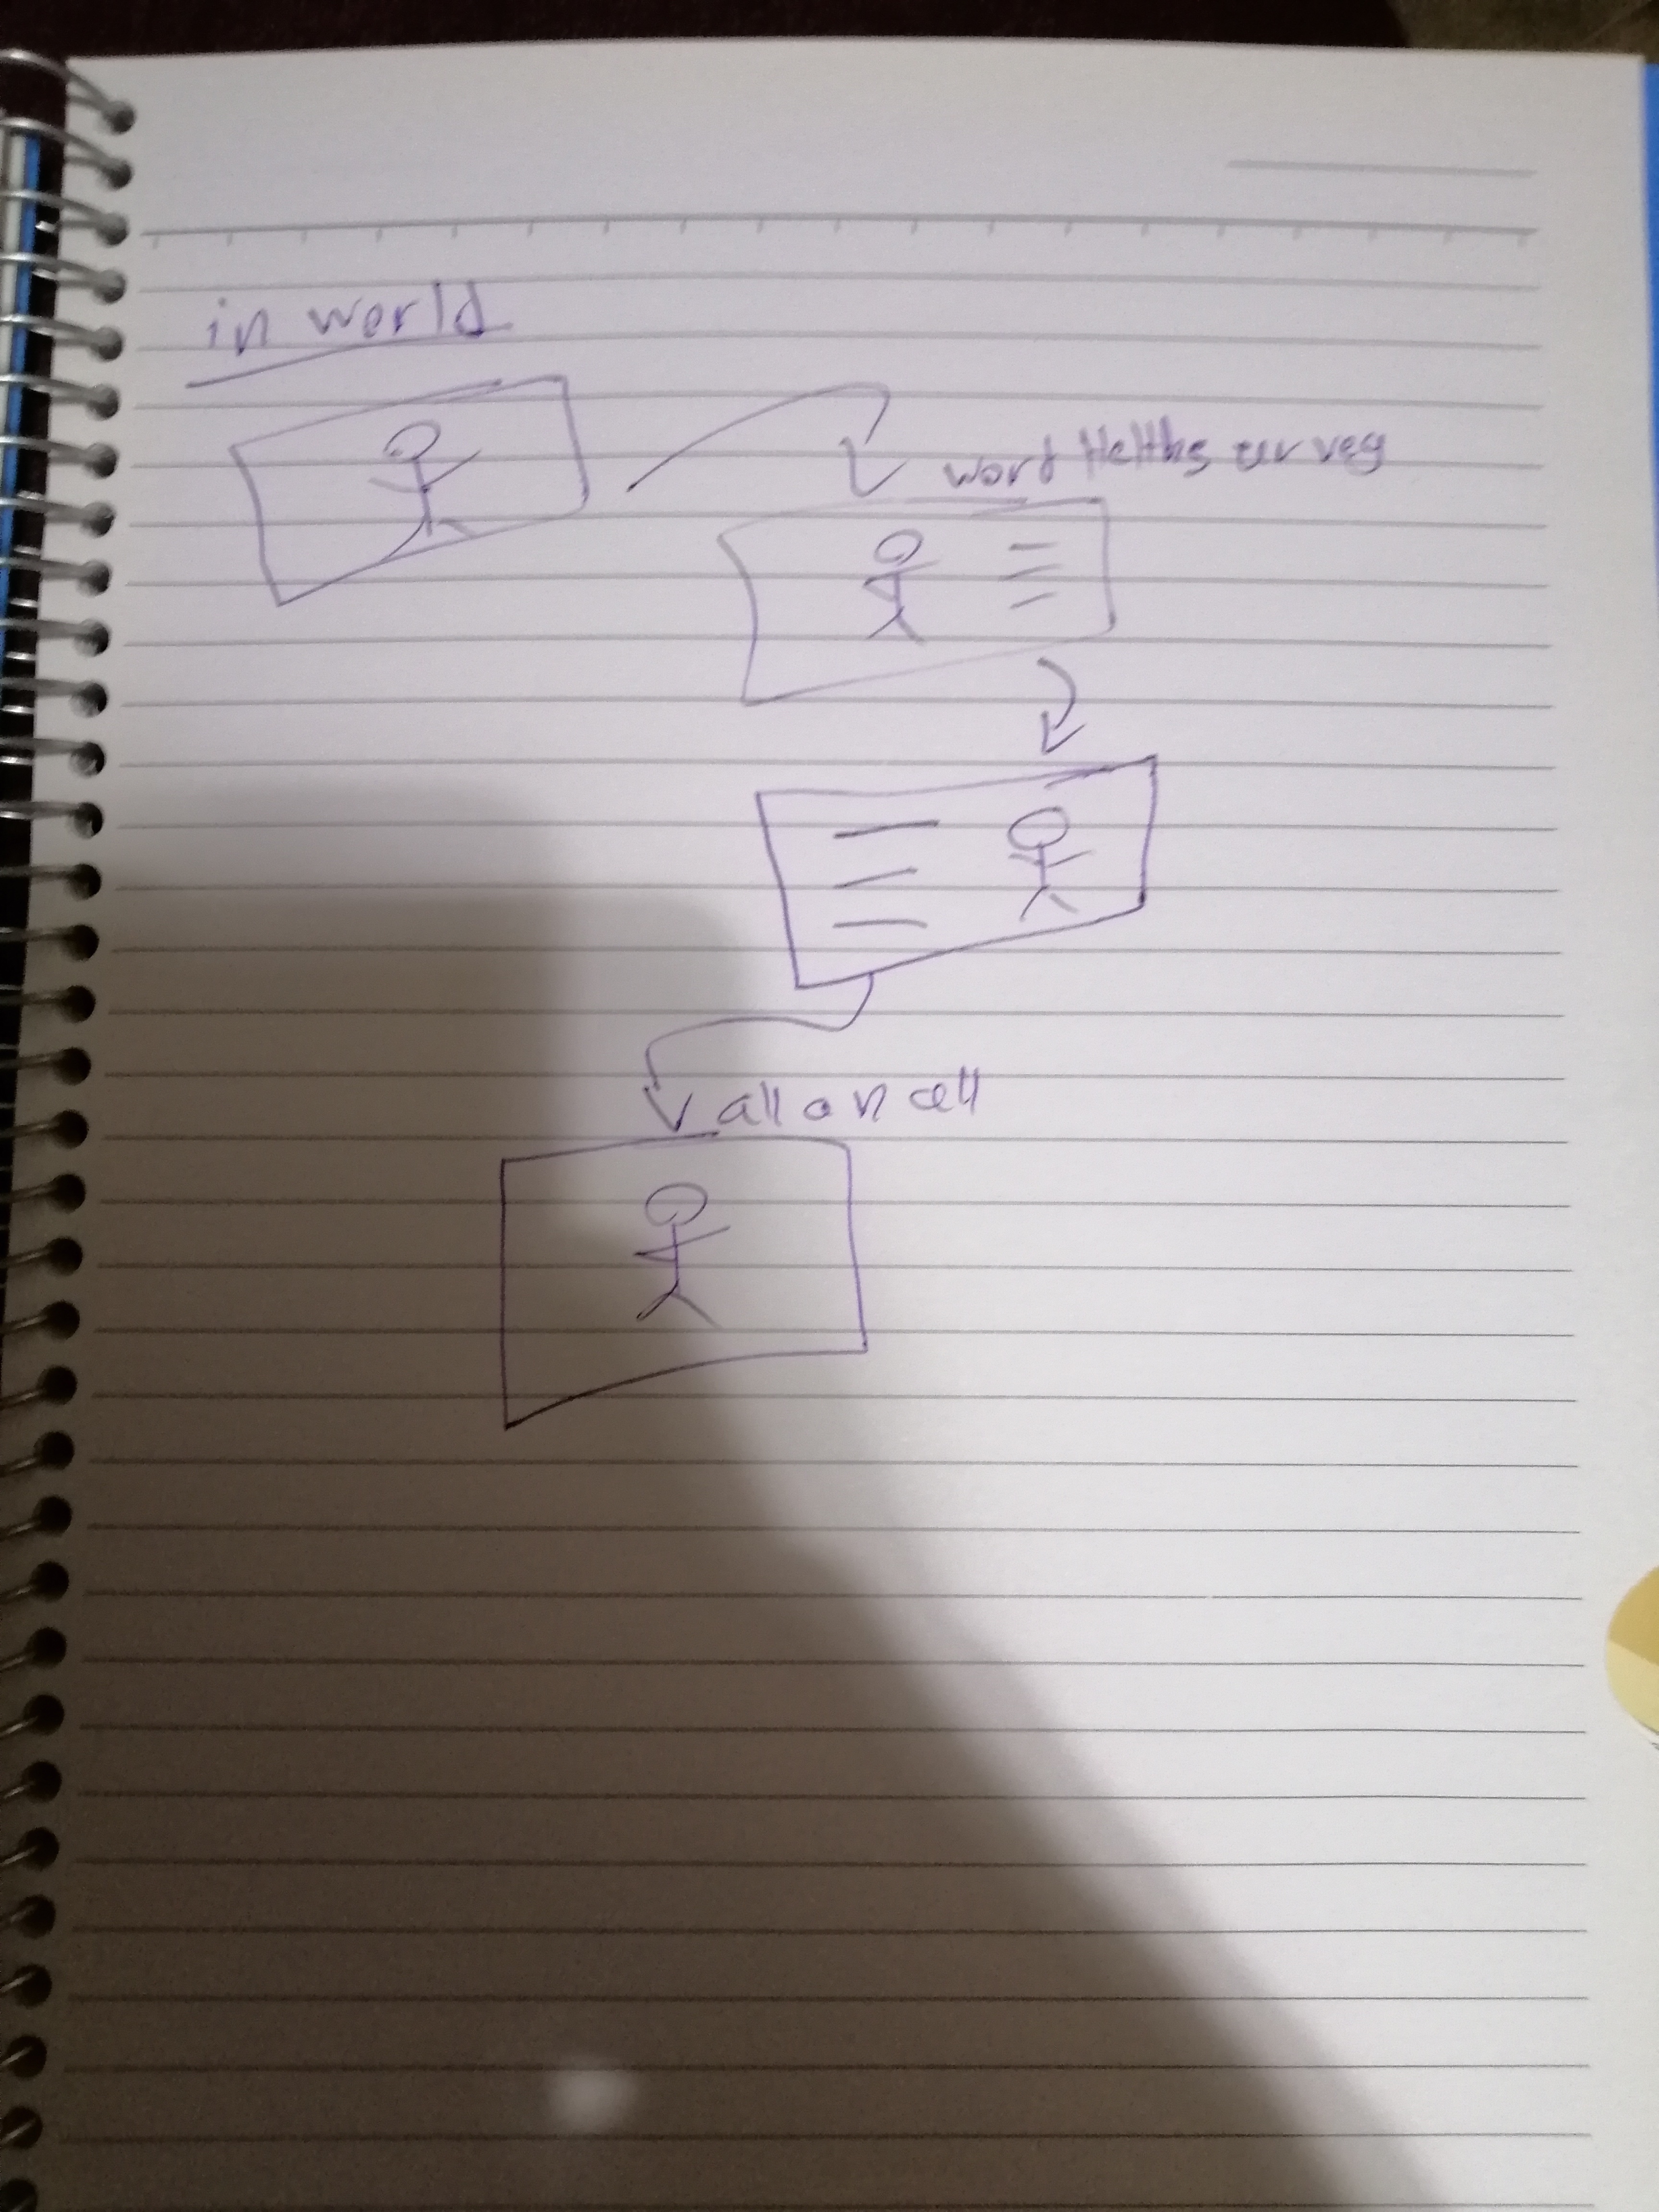 in world
word Helths survey
all on cell